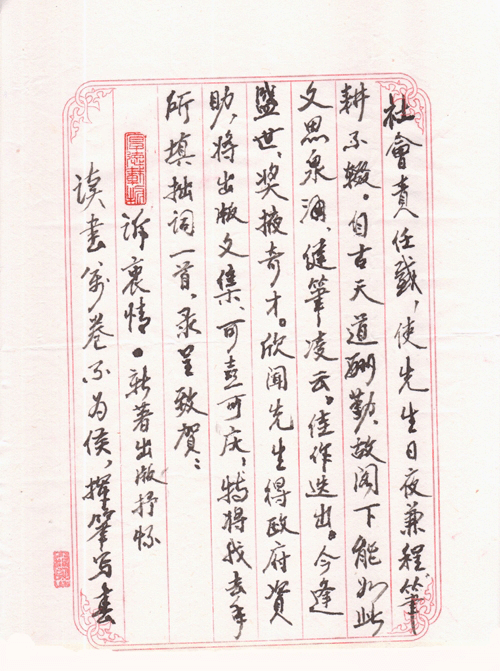 社會責任感，使先生日夜兼程，筆
耕不辍。自古天道酬勤，故阁下能如此
文思泉涌、健筆凌云。佳作迭出。今逢
盛世、奖掖奇才。欣闻先生得政府资
助，将出版文集、可喜可庆，特将我去年
所填拙词一首，录呈致贺：
诉衷情·新著出版抒怀
读書万卷不为侯，挥筆写春